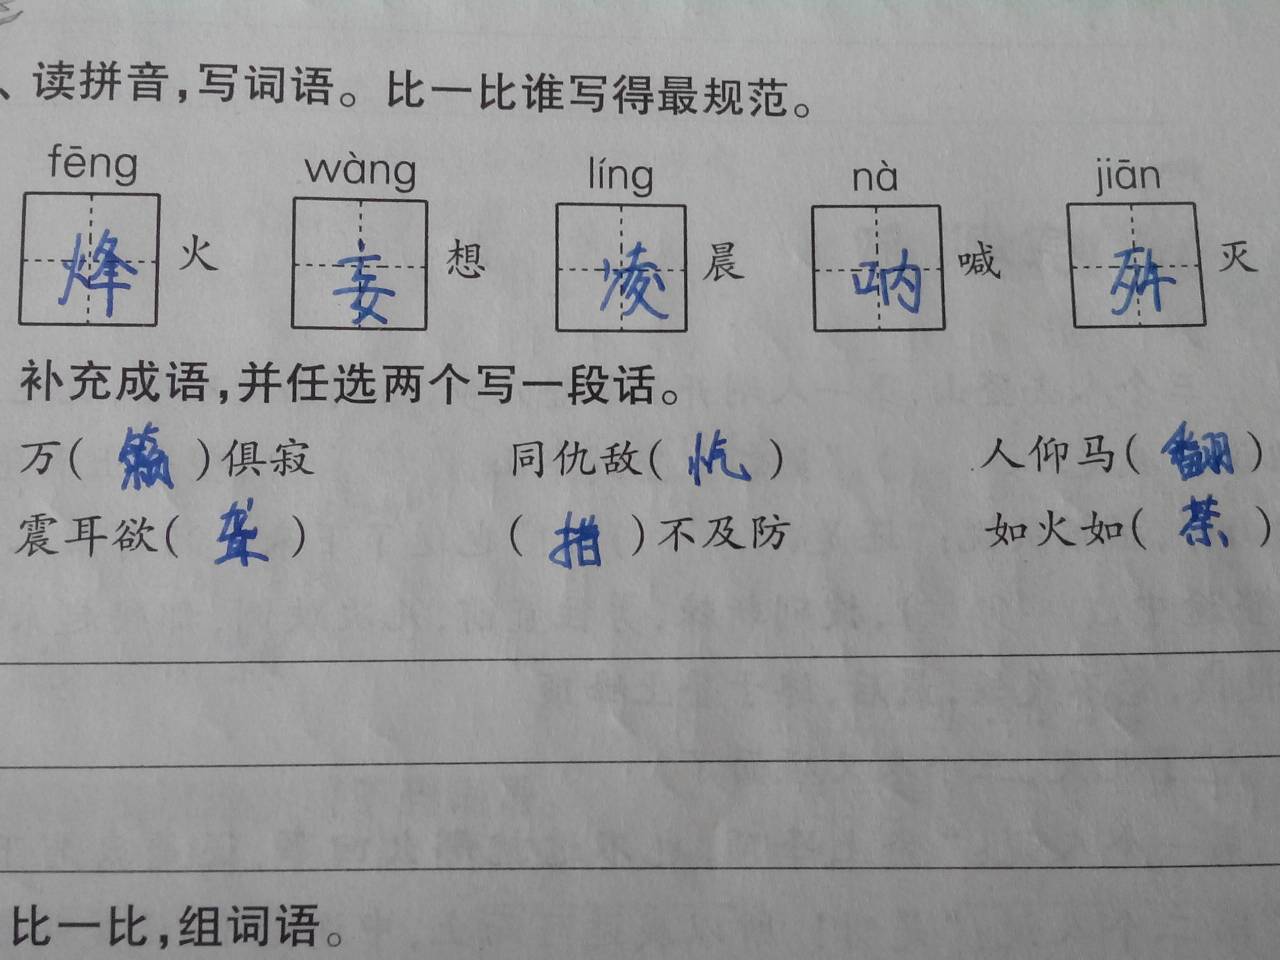 、读拼音,写词语。比一比谁写得最规范。
fēng wàng líng nà jiān
烽火 妄想 凌晨 呐喊 歼灭
补充成语,并任选两个写一段话。
万(籁)俱寂 同仇敌(忾) 人仰马(翻)
震耳欲(聋) (措)不及防 如火如(荼)
比一比,组词语。